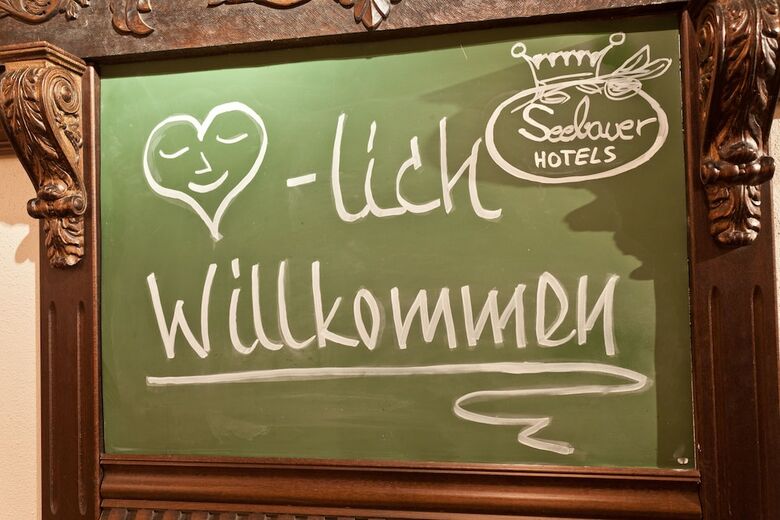 Seebauer
HOTELS
-lich
Willkommen